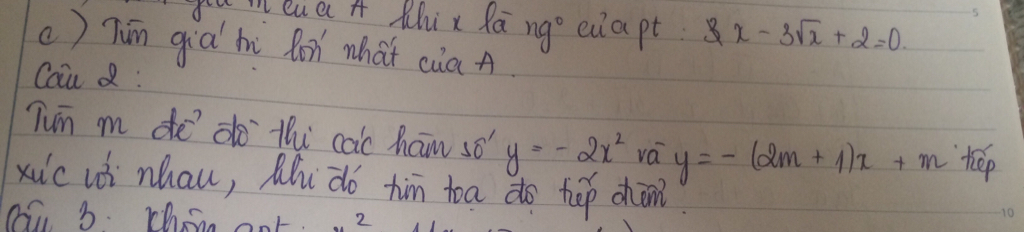 trị của A khi x là ngº của pt: x - 3√x + 2 = 0.
c) Tìm giá trị lớn nhất của A.
Câu 2:
Tìm m để đồ thị các hàm số y = - 2x² và y = - (2m + 1)x + m tiếp
xúc với nhau, khi đó tìm toạ độ tiếp điểm.
Câu 3: Không x²
5
10